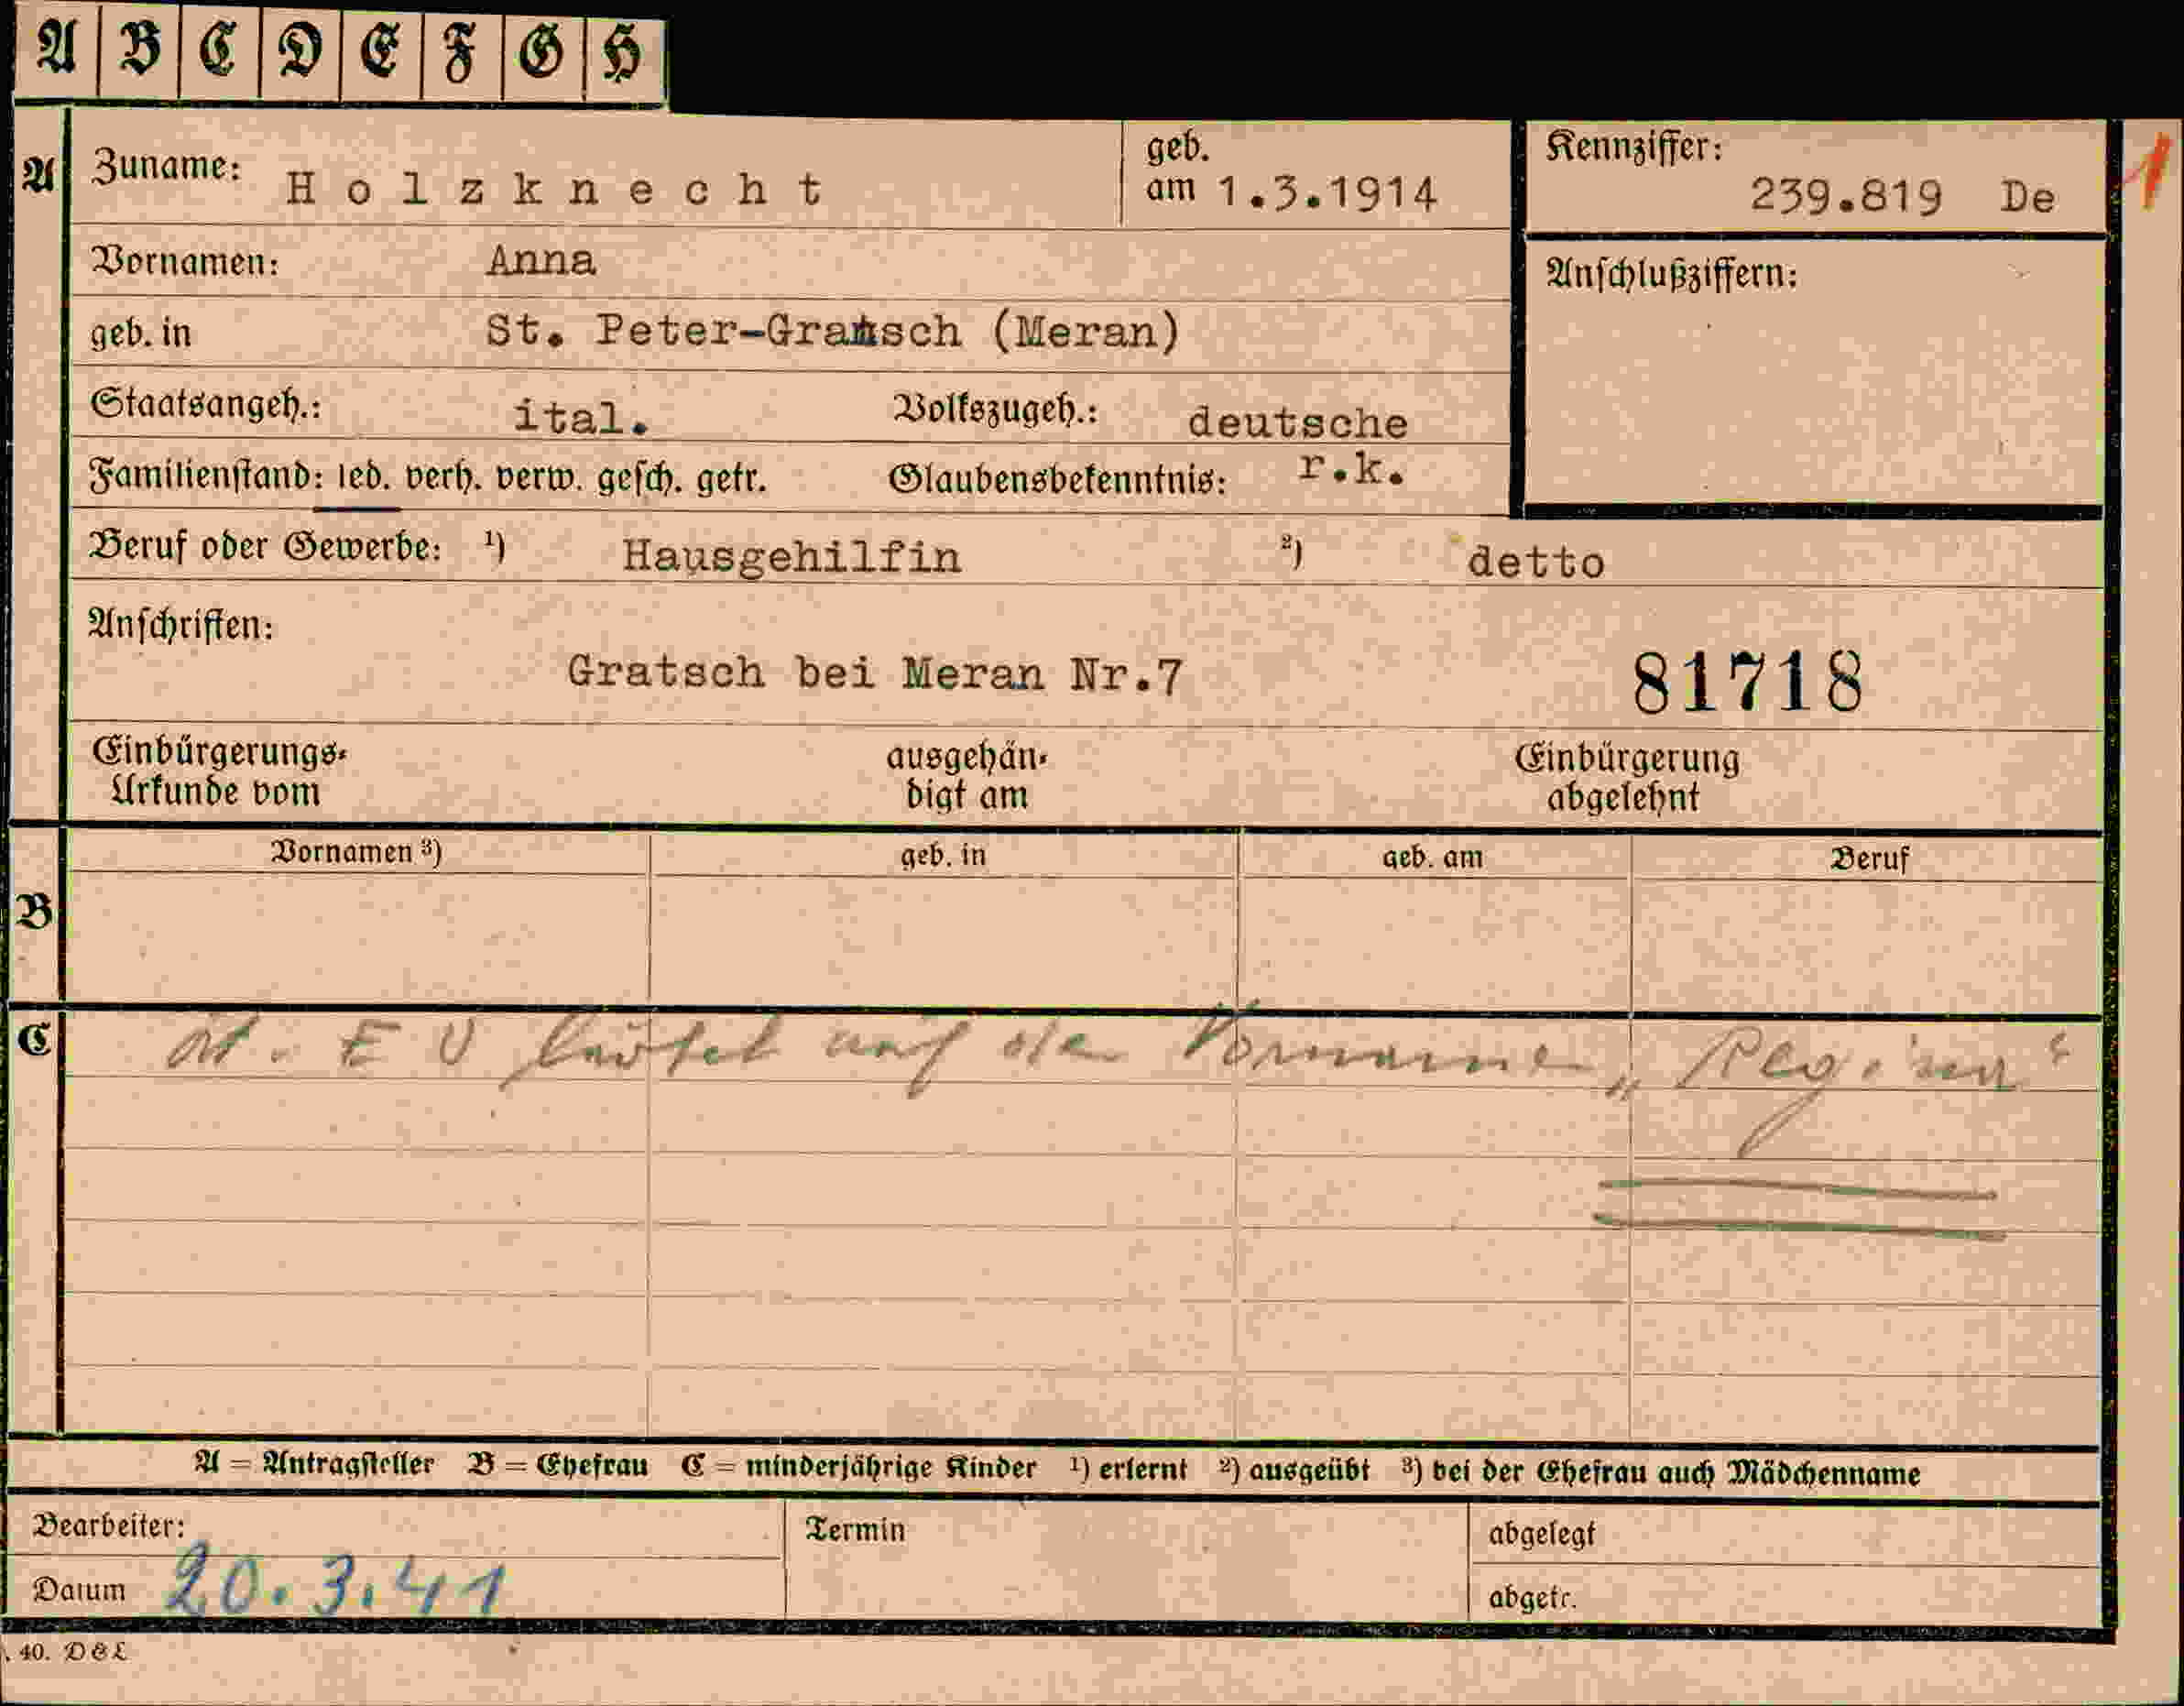 A B C D E F G H
1
A Zuname: Holzknecht geb. am 1.3.1914 Kennziffer: 239.819 De
Vornamen: Anna Anschlußziffern:
geb. in St. Peter-Gratsch (Meran)
Staatsangeh.: ital. Volkszugeh.: deutsche
Familienstand: led. verh. verw. gesch. getr. Glaubensbekenntnis: r.k.
Beruf oder Gewerbe: ¹) Hausgehilfin ²) detto
Anschriften:
Gratsch bei Meran Nr.7 81718
Einbürgerungs- ausgehän- Einbürgerung
Urkunde vom digt am abgelehnt
Vornamen ³) geb. in geb. am Beruf
B
C E U lautet auf den Vornamen „Regina“
A = Antragsteller B = Ehefrau C = minderjährige Kinder ¹) erlernt ²) ausgeübt ³) bei der Ehefrau auch Mädchenname
Bearbeiter: Termin abgelegt
Datum 20.3.41 abgetr.
40. D&L